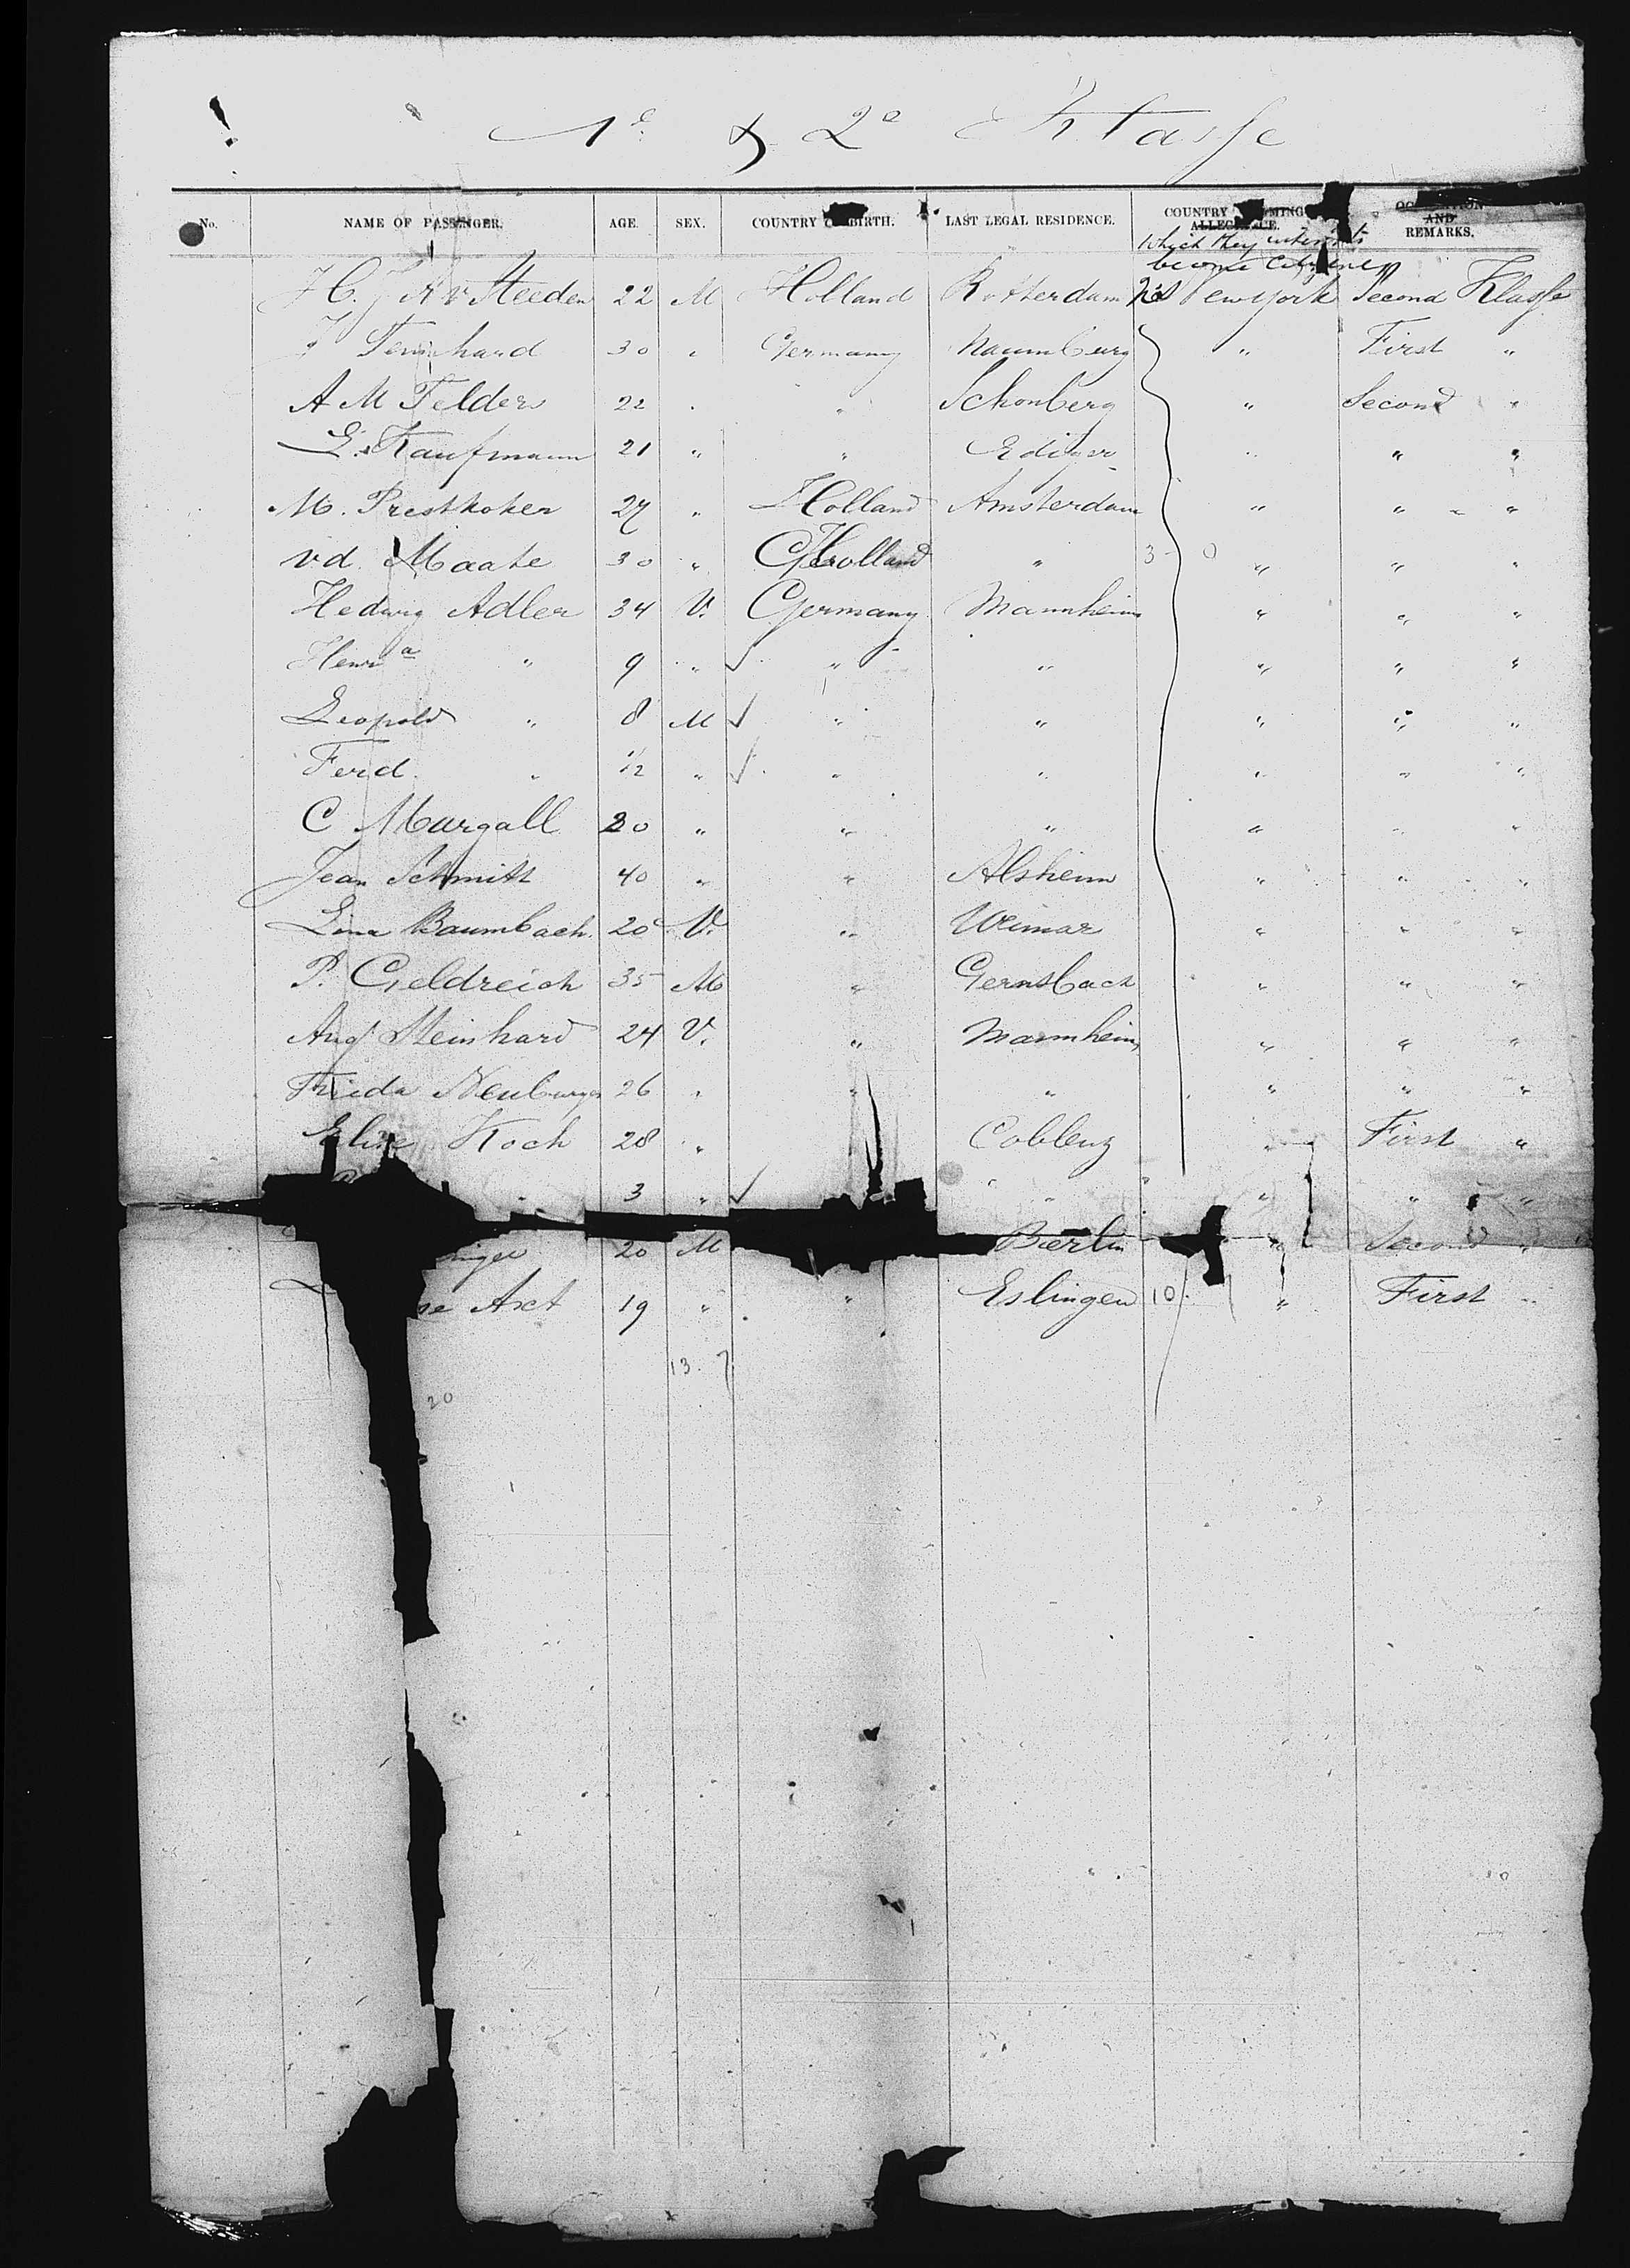 1e & 2e Klasse
No. NAME OF PASSENGER. AGE. SEX. COUNTRY OF BIRTH. LAST LEGAL RESIDENCE. COUNTRY REMARKS.
which they intend to
become Citizens
22 M Holland Rotterdam Newyork Second Klasse
30 " Germany Naumburg " First "
A M Felder 22 " " Schonberg " Second "
L. Kaufmann 21 " " Ediger " " "
M. 27 " Holland Amsterdam " " "
v d. Maate 30 " Holland " 3 - 0 " " "
Hedwig Adler 34 V. Germany Mannheim " " "
Henr a " 9 " ✓ " " " " "
Leopold " 8 M ✓ " " " " "
Ferd. " 1/2 " ✓ " " " " "
C Murgall 20 " " " " " "
Jean Schmitt 40 " " Alsheim " " "
Lina Baumbach. 20 V. " Weimar " " "
P. Geldreich 35 M " Gernsbach " " "
Aug Steinhard 24 V. " Mannheim " " "
Frieda Neuburger 26 " " " " " "
Elise Koch 28 " Coblenz " First "
" 3 " ✓ " " " "
20 M Berlin " Second "
Axt 19 " " Eslingen 10 " First "
13. 7
20